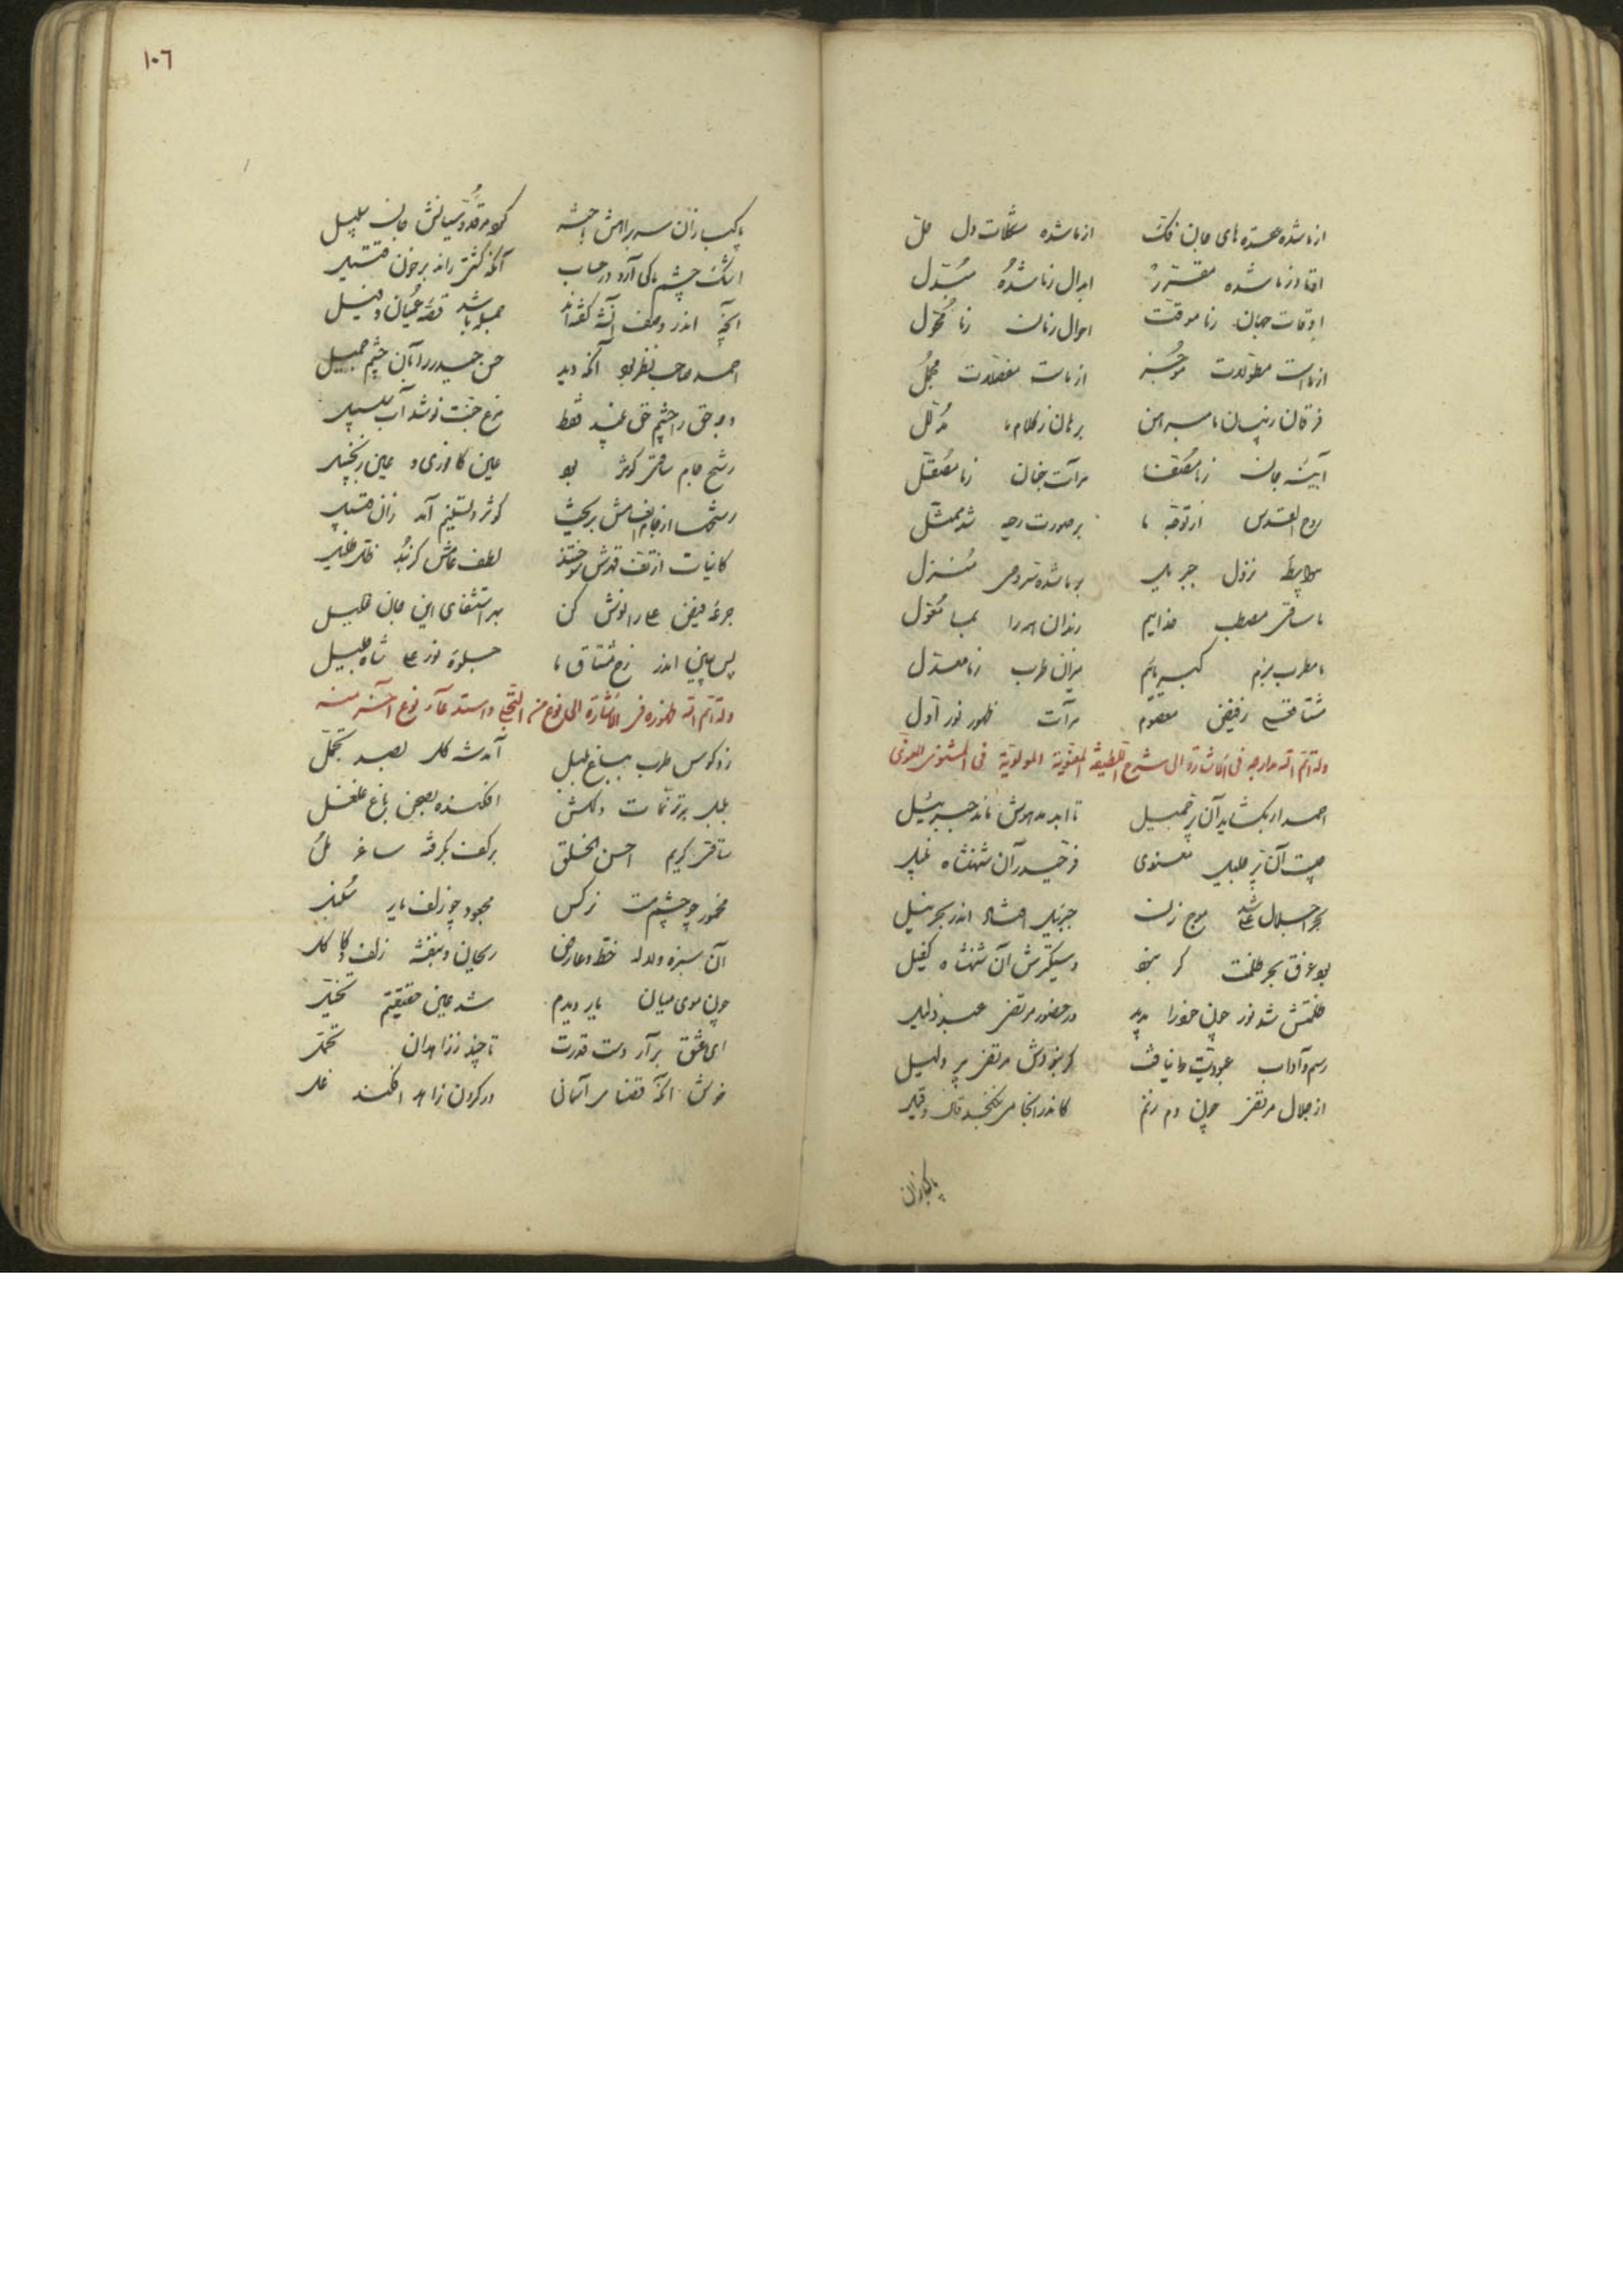 از ما شده عقدهای جان فک از ما شده مشکلات دل حل
اوتاد ز ما شده مقرر ابدال ز ما شده مبدل
اوقات جهان ز ما موقت احوال زمان ز ما محول
از ماست مطولات موجز از ماست مفصلات مجمل
فرقان ز بیان ما مبرهن برهان ز کلام ما مدلل
آیینه جان ز ما مصفا مرآت جنان ز ما مصقل
روح القدس از توجه ما بر صورت دحیه شد ممثل
بواسطه نزول جبریل بر ما شده وحی منزل
ما ساقی مصطب خداییم رندان همه را بما معول
ما مطرب بزم کبریاییم میزان طرب ز ما معدل
مشتاقم ز فیض معصوم مرآت ظهور نور اول
وله اتم الله معارجه فی الاشارة الی شرح اللطیفة المعنویة المولویة فی المثنوی المعنوی
احمد ار بگشاید آن پر جمیل تا ابد مدهوش ماند جبرئیل
چیست آن پر جلیل معنوی فر حیدر آن شهنشاه نبیل
بحر اجلال علی شد موج زن جبرئیل افتاد اندر بحر نیل
بود غرق بحر ظلمت گر نبود دستگیرش آن شهنشاه کفیل
ظلمتش شد نور چون خود را بدید در حضور مرتضی عبد ذلیل
رسم و آداب عبودیت نیافت گر نبودش مرتضی پیر و دلیل
از جلال مرتضی چون دم زنم کاندر آنجا می نگنجد قال و قیل
پاکبازان
١٠٦
پاکبازان سر براهش باخته
اشک چشم ما کی آرد در حساب آنکه کشتی راند بر خون قتیل
آنچه اندر وصف گفته اند جمله باشد قصه عمیان و فیل
احمد صاحب نظر بود آنکه دید حسن حیدر را بآن چشم جمیل
وجه حق را چشم حق بیند فقط مرغ جنت نوشد آب سلسبیل
رشح جام ساقی کوثر بود عین کافوری و عین زنجبیل
کوثر و تسنیم آمد زان قبیل
کاینات از تف قهرش سوختند لطف عامش گر نبد ظل ظلیل
جرعه فیض علی را نوش کن بهر استشفای این جان علیل
پس ببین اندر رخ مشتاق ما جلوه نور علی شاه جلیل
وله اتم الله ظهوره فی الاشارة الی نوع من التجلی و استدعاء نوع آخر منه
زد کوس طرب بباغ بلبل آمد شه گل بصد تجمل
بلبل بترنمات دلکش افکنده بصحن باغ غلغل
ساقی کریم احسن الخلق بر کف بگرفته ساغر مل
مخمور چو چشم مست نرگس مجعود چو زلف یار سنبل
آن سبزه و لاله خط و عارض ریحان و بنفشه زلف و کاکل
چون موی میان یار دیدم شد عین حقیقتم تخیل
ای عشق بر آر دست قدرت تا چند ز زاهدان تحمل
خوش آنکه قضای آسمانی در گردن زاهد افکند غل